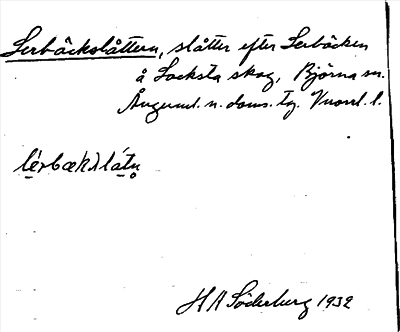 Lerbäckslåttern, slåtter efter Lerbäcken
å Locksta skog, Björna sn.
Ångerml. n. doms. tg. Vnorrl. l.
lérbækslátn̥
H A Söderberg 1932